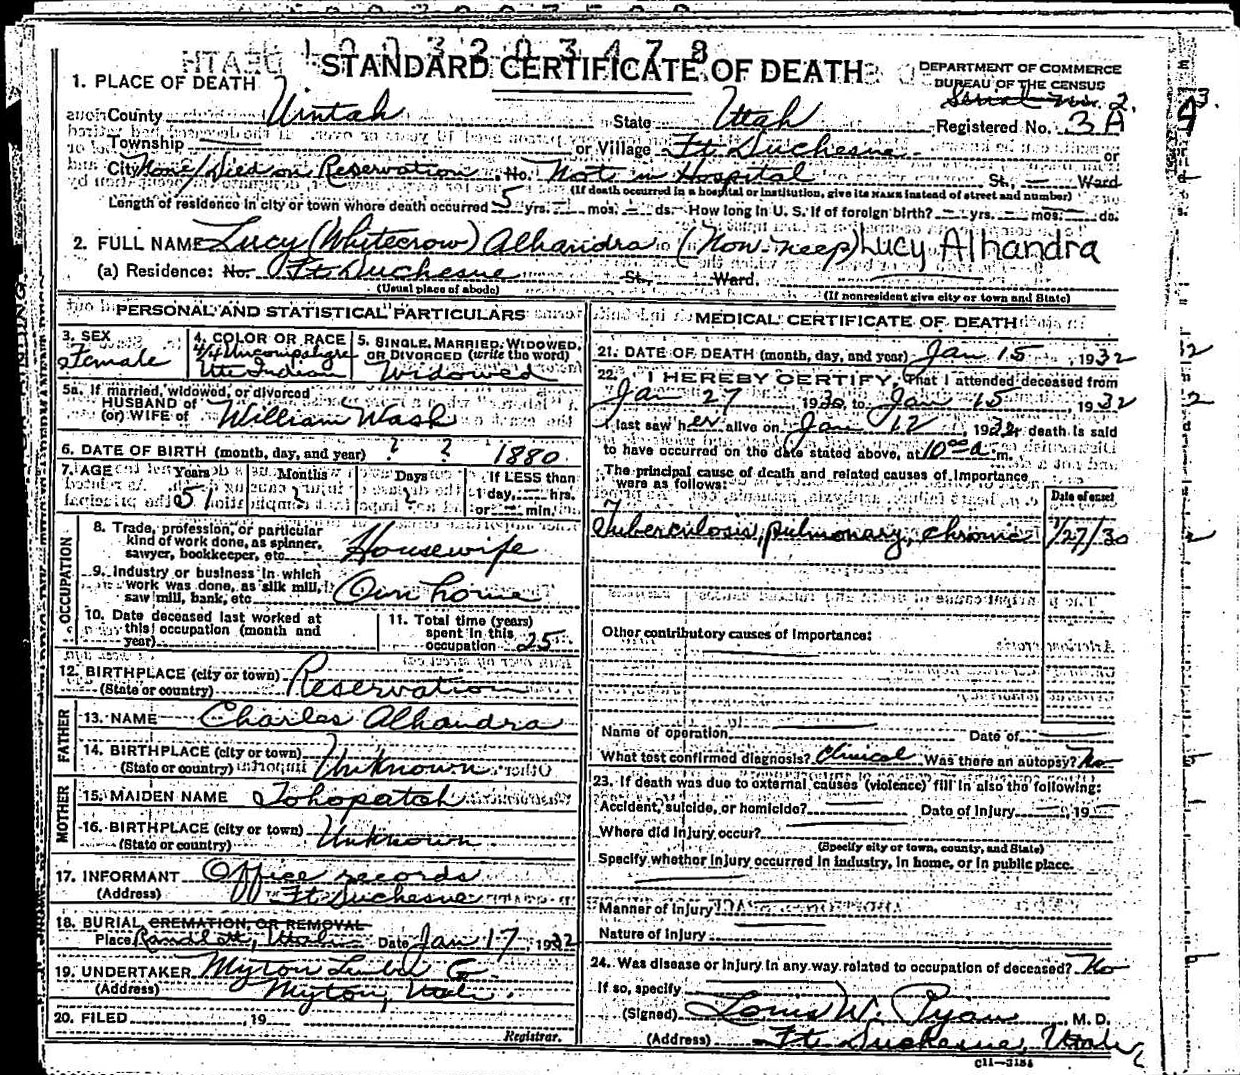 STANDARD CERTIFICATE OF DEATH
DEPARTMENT OF COMMERCE
BUREAU OF THE CENSUS
1. PLACE OF DEATH
County Uintah State Utah Registered No. 3 A
Township or Village Ft. Duchesne or
City None/Died on Reservation No. Not in Hospital St. Ward
(If death occurred in a hospital or institution, give its NAME instead of street and number)
Length of residence in city or town where death occurred 5 yrs. mos. ds. How long in U. S. if of foreign birth? yrs. mos. ds.
2. FULL NAME Lucy (Whitecrow) Alhandra Lucy Alhandra
(a) Residence: No. Ft. Duchesne St. Ward.
(Usual place of abode) (If nonresident give city or town and State)
PERSONAL AND STATISTICAL PARTICULARS
3. SEX
Female
4. COLOR OR RACE
4/4 Uncompahgre
Ute Indian
5. SINGLE, MARRIED, WIDOWED,
OR DIVORCED (write the word)
Widowed
5a. If married, widowed, or divorced
HUSBAND of
(or) WIFE of William Wash
6. DATE OF BIRTH (month, day, and year) ? ? 1880
7. AGE Years Months Days If LESS than
51 ? ? 1 day, hrs.
or min.
OCCUPATION
8. Trade, profession, or particular
kind of work done, as spinner,
sawyer, bookkeeper, etc. Housewife
9. Industry or business in which
work was done, as silk mill,
saw mill, bank, etc. Own home
10. Date deceased last worked at
this occupation (month and
year)
11. Total time (years)
spent in this
occupation 25
12. BIRTHPLACE (city or town)
(State or country) Reservation
FATHER
13. NAME Charles Alhandra
14. BIRTHPLACE (city or town)
(State or country) Unknown
MOTHER
15. MAIDEN NAME Tohopatch
16. BIRTHPLACE (city or town)
(State or country) Unknown
17. INFORMANT Office records
(Address) Ft. Duchesne
18. BURIAL, CREMATION, OR REMOVAL
Place Randlett, Utah Date Jan 17 1932
19. UNDERTAKER Myton
(Address) Myton, Utah.
20. FILED , 19
Registrar.
MEDICAL CERTIFICATE OF DEATH
21. DATE OF DEATH (month, day, and year) Jan 15, 1932
22. I HEREBY CERTIFY, That I attended deceased from
Jan 27, 1930, to Jan 15, 1932
I last saw her alive on Jan 12, 1932, death is said
to have occurred on the date stated above, at 10 00 a. m.
The principal cause of death and related causes of importance
were as follows:
Date of onset
Tuberculosis, pulmonary, chronic 1/27/30
Other contributory causes of importance:
Name of operation Date of
What test confirmed diagnosis? Clinical Was there an autopsy? No
23. If death was due to external causes (violence) fill in also the following:
Accident, suicide, or homicide? Date of injury , 19
Where did injury occur?
(Specify city or town, county, and State)
Specify whether injury occurred in industry, in home, or in public place.
Manner of injury
Nature of injury
24. Was disease or injury in any way related to occupation of deceased? No
If so, specify
(Signed) Louis W. Ryan M. D.
(Address) Ft. Duchesne, Utah
C11—3184